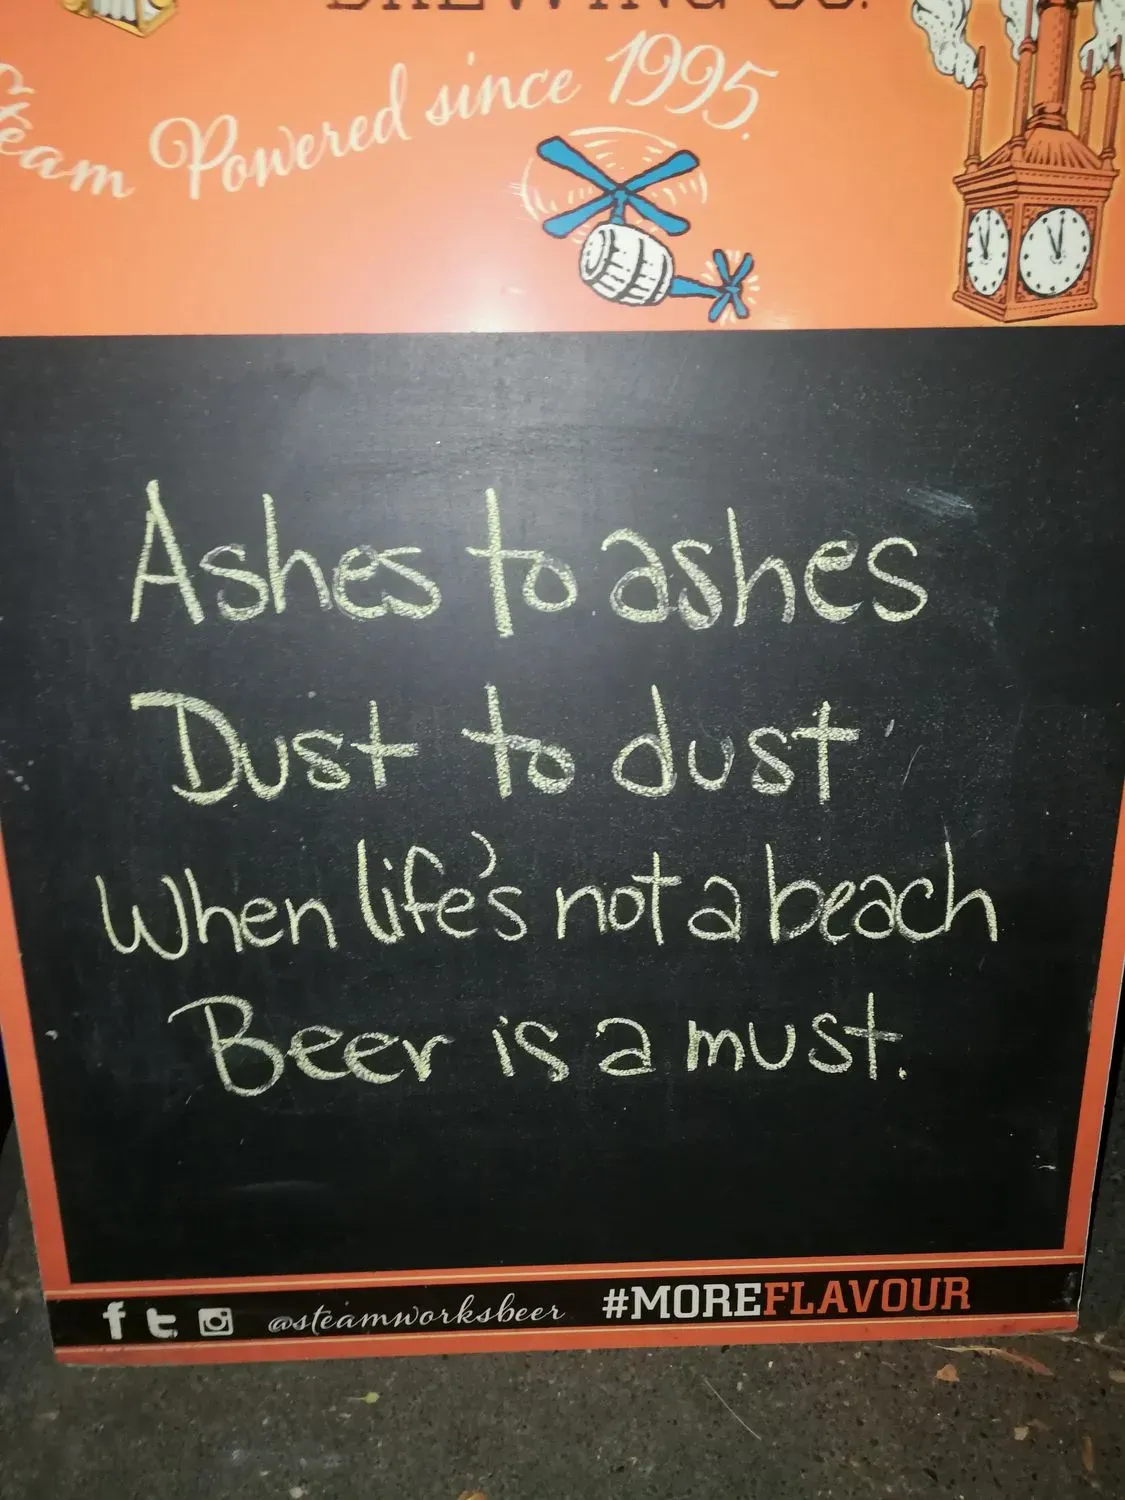 BREWING CO.
Steam Powered since 1995.
Ashes to ashes
Dust to dust
When life's not a beach
Beer is a must.
@steamworksbeer #MOREFLAVOUR